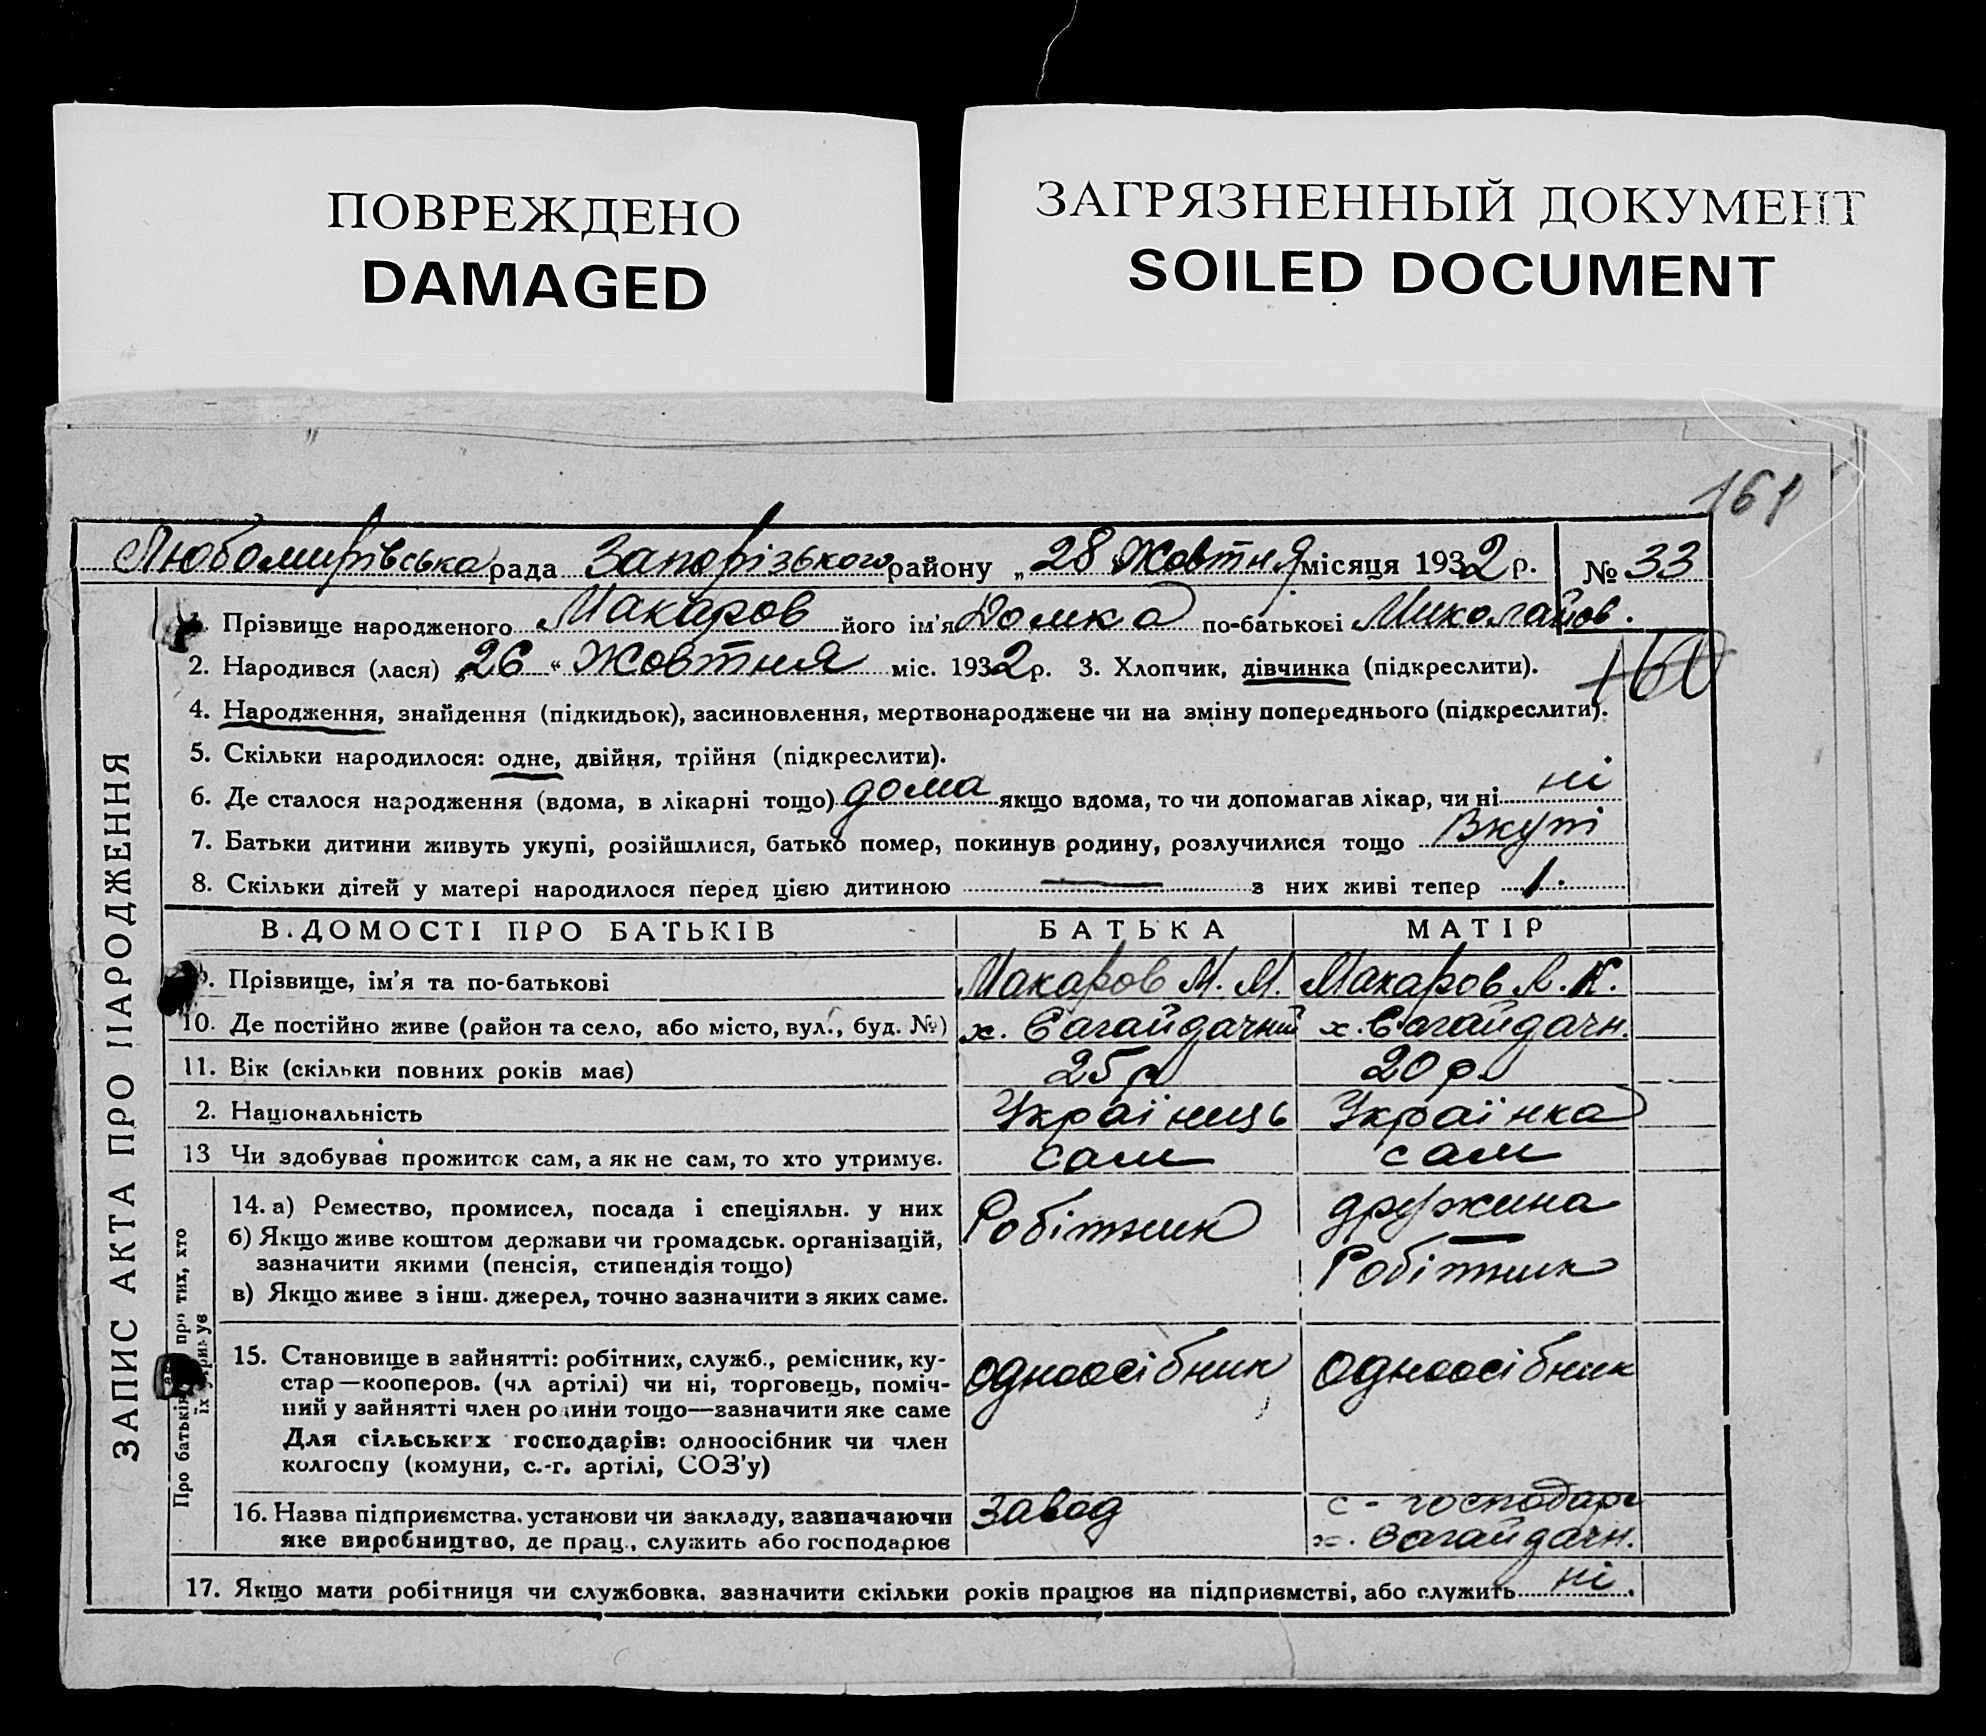 ПОВРЕЖДЕНО
DAMAGED
ЗАГРЯЗНЕННЫЙ ДОКУМЕНТ
SOILED DOCUMENT
161
Любомирівська рада Запорізького району „28 Жовтня місяця 1932 р. № 33
1. Прізвище народженого Макаров його ім'я Домка по-батькові Миколайов.
2. Народився (лася) „26“ Жовтня міс. 1932 р. 3. Хлопчик, дівчинка (підкреслити).
160
4. Народження, знайдення (підкидьок), засиновлення, мертвонароджене чи на зміну попереднього (підкреслити).
5. Скільки народилося: одне, двійня, трійня (підкреслити).
6. Де сталося народження (вдома, в лікарні тощо) дома якщо вдома, то чи допомагав лікар, чи ні ні
7. Батьки дитини живуть укупі, розійшлися, батько помер, покинув родину, розлучилися тощо Вкупі
8. Скільки дітей у матері народилося перед цією дитиною — з них живі тепер 1.
ЗАПИС АКТА ПРО НАРОДЖЕННЯ
В.ДОМОСТІ ПРО БАТЬКІВ БАТЬКА МАТІР
9. Прізвище, ім'я та по-батькові Макаров М. М. Макаров А. К.
10. Де постійно живе (район та село, або місто, вул., буд. №) х. Сагайдачний х. Сагайдачн.
11. Вік (скільки повних років має) 25 р 20 р.
2. Національність Українець Українка
13 Чи здобував прожиток сам, а як не сам, то хто утримує. сам сам
Про батьків про тих, хто їх утримує
14. а) Ремество, промисел, посада і спеціяльн. у них Робітник дружина
б) Якщо живе коштом держави чи громадськ. організацій, Робітник
зазначити якими (пенсія, стипендія тощо)
в) Якщо живе з інш. джерел, точно зазначити з яких саме.
15. Становище в зайнятті: робітник, служб., ремісник, ку- одноосібник одноосібник
стар—кооперов. (чл артілі) чи ні, торговець, поміч-
ний у зайнятті член родини тощо—зазначити яке саме
Для сільських господарів: одноосібник чи член
колгоспу (комуни, с.-г. артілі, СОЗ'у)
16. Назва підприємства, установи чи закладу, зазначаючи завод с-господарс
яке виробництво, де прац., служить або господарює х. Сагайдачн.
17. Якщо мати робітниця чи службовка, зазначити скільки років працює на підприємстві, або служить ні.